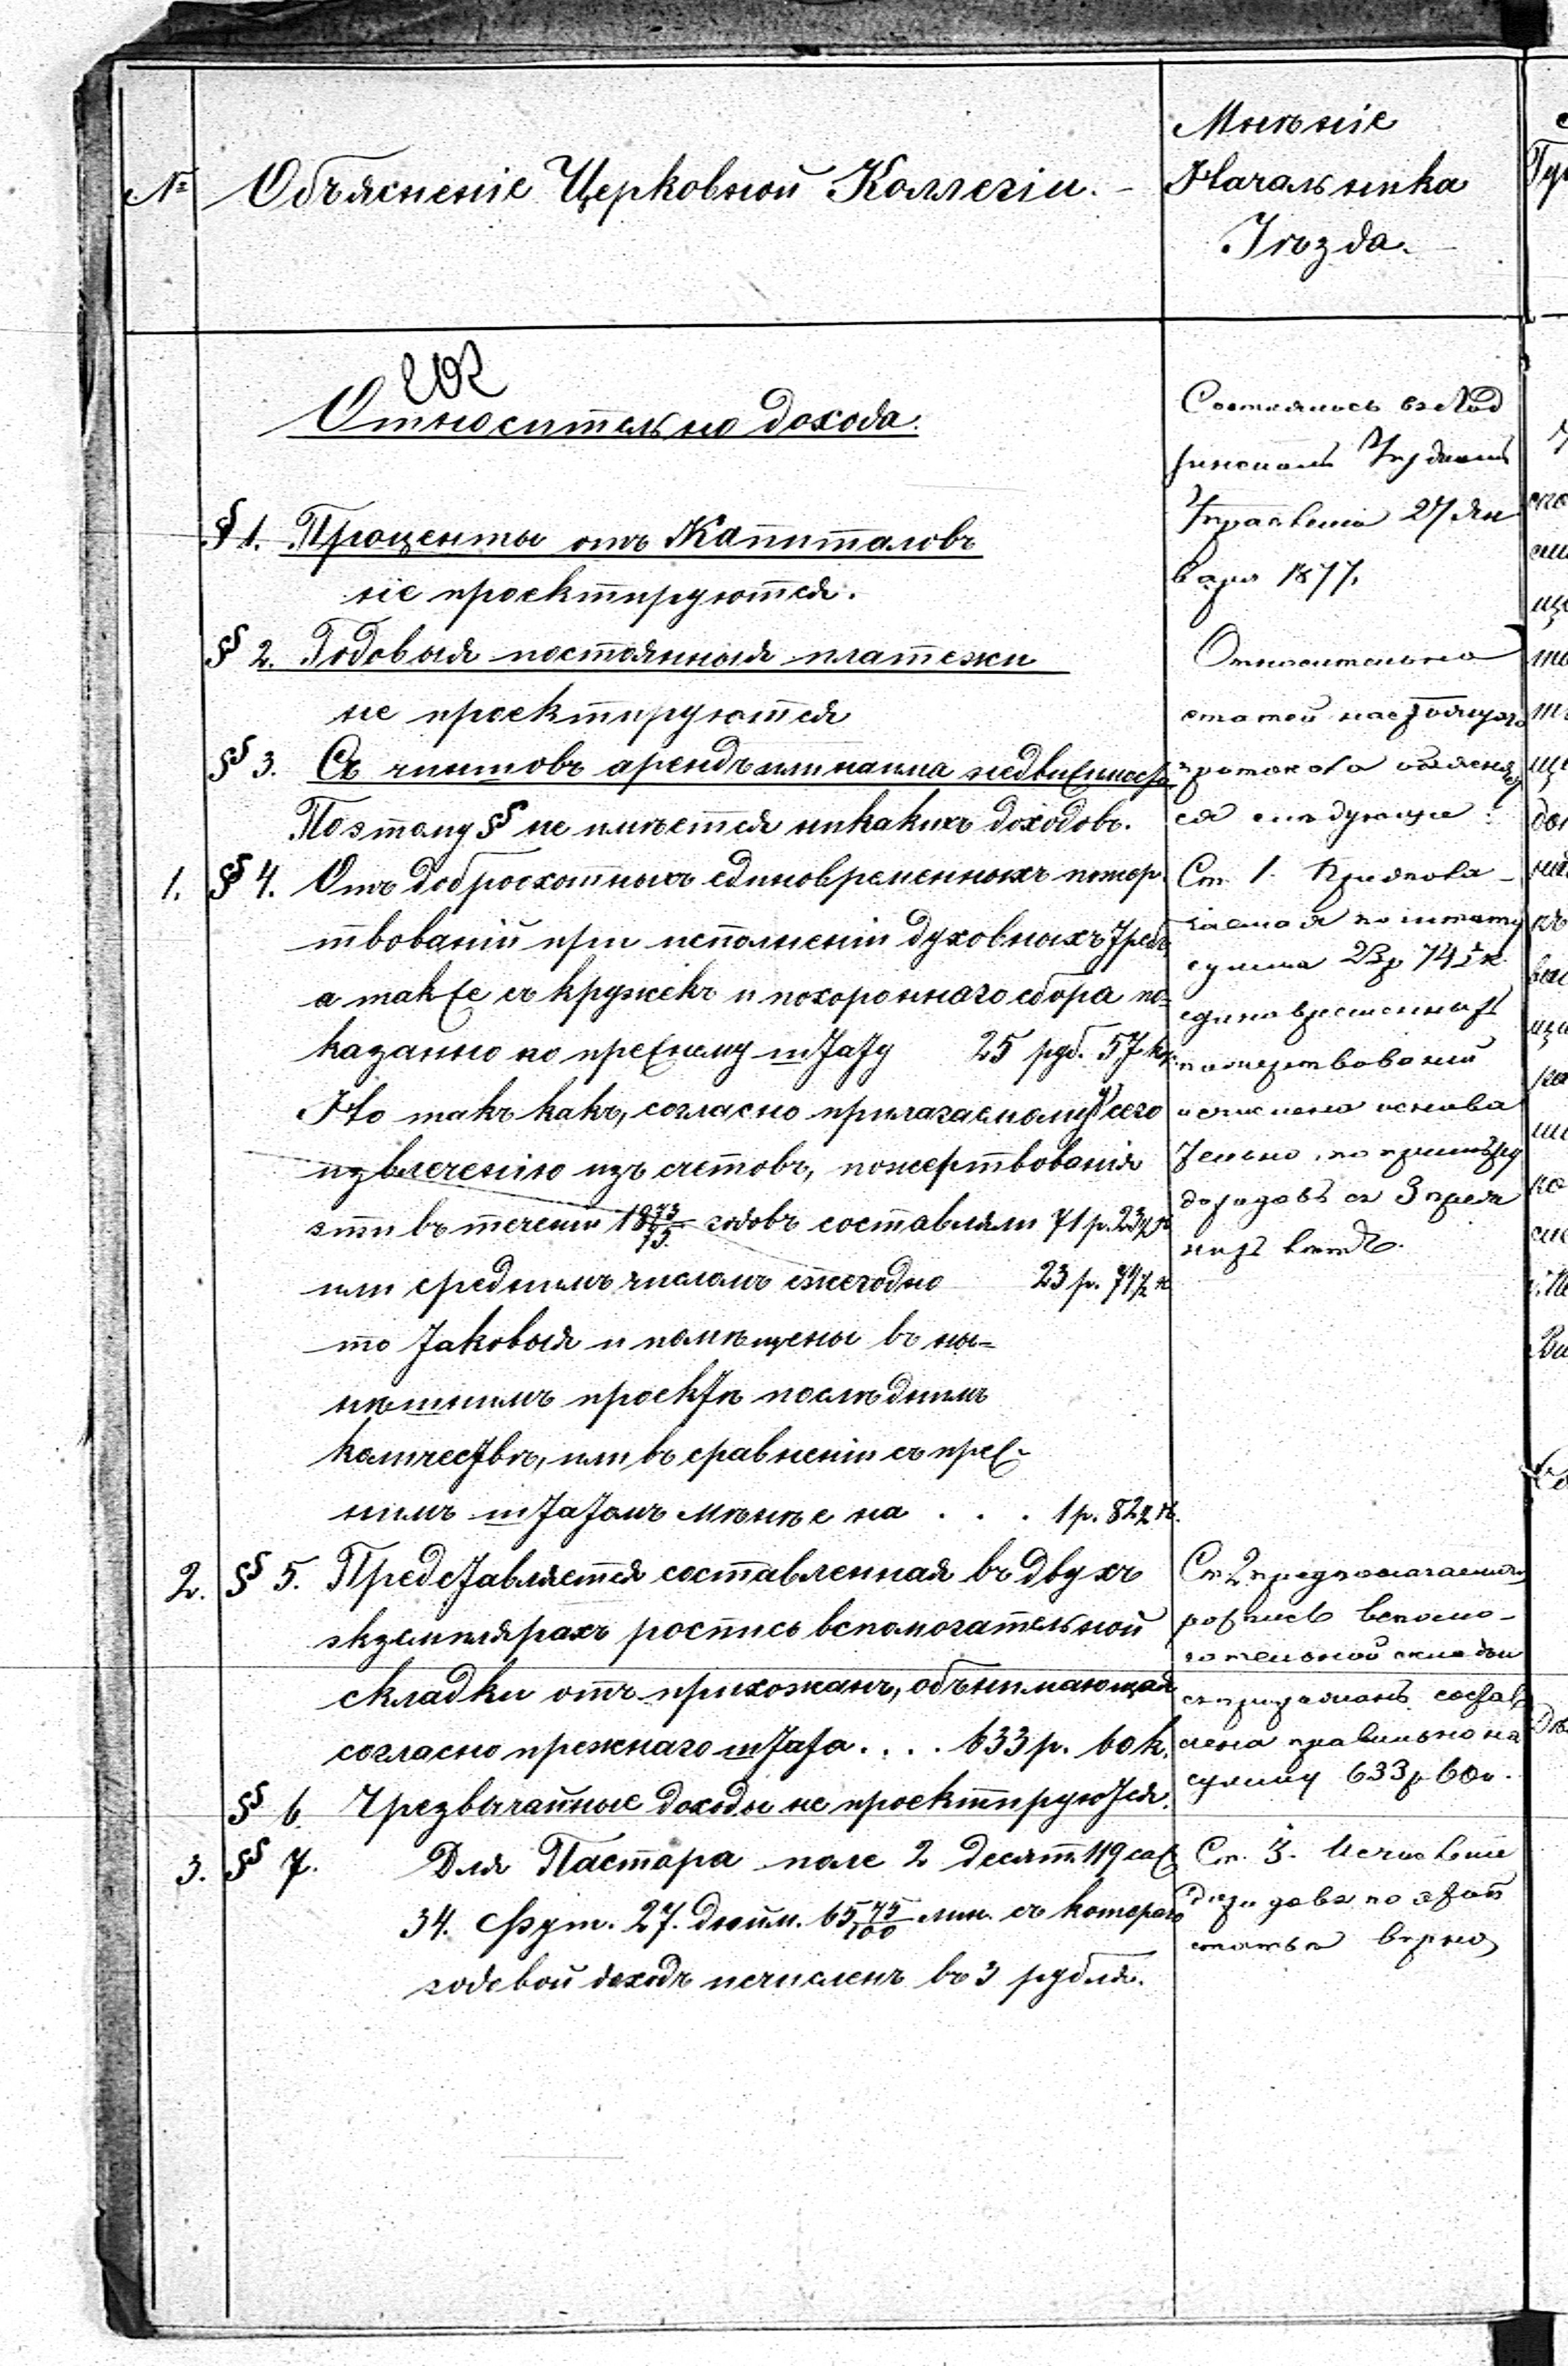 №
Объясненіе Церковной Коллегіи.
Мнѣніе
Начальника
Уѣзда.
Относительно дохода.
§ 1. Проценты отъ Капиталовъ
не проектируются.
§ 2. Годовыя постоянныя платежи
не проектируются
§ 3. Съ чиншовъ арендъ или найма недвижимос
По этому § не имѣется никакихъ доходовъ.
1. § 4. Отъ доброхотныхъ единовременныхъ пожер
твованій при исполненіи духовныхъ требъ
а также съ кружекъ и похороннаго сбора по=
казанно по прежнему штату 25 руб. 57 к.
Но такъ какъ, согласно прилагаемому у сего
извлеченію изъ счетовъ, пожертвованія
эти въ теченіи 1873/75 годовъ составляли 71 р. 23½ к
или среднимъ числомъ ежегодно 23 р. 74½ к
то таковыя и помѣщены въ ны=
нѣшнимъ проектѣ послѣднимъ
количествѣ, или въ сравненіи съ преж-
нимъ штатомъ мѣнѣе на . . . 1 р. 82½ к.
2. § 5. Представляется составленная въ двухъ
экземплярахъ роспись вспомогательной
складки отъ прихожанъ, объимающая
согласно прежнаго штата . . . . 633 р. 60 к.
§ 6. Чрезвычайные доходы не проектируются.
3. § 7. Для Пастора поле 2 десят. 119 саж
34. фут. 27. дюйм. 65 75/100 лин. съ котораго
годовой доходъ исчисленъ въ 3 рубля.
Состоялось въ Лод
зинскомъ Уѣздномъ
Управленіи 27 Ян
варя 1877.
Относительно
статей настоящаго
протокола объясняет
ся слѣдующее:
Ст. 1.
по штату
сумма 23 р 74½ к.
единовременныхъ
пожертвованій
исчислена основа
тельно, по примѣру
доходовъ съ 3 преж
нихъ лѣтъ.
Ст. 2 предполагаемая
роспись вспомо-
гательной складки
съ прихожанъ состав
лена правильно на
сумму 633 р 60 к.
Ст. 3. Исчисленіе
доходовъ по этой
статьѣ вѣрно